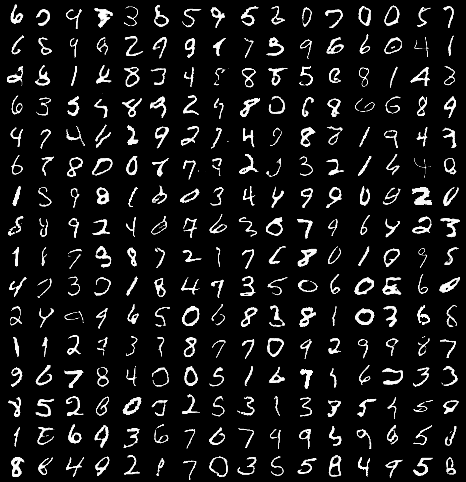 6 0 9 7 3 8 5 9 5 3 0 7 0 0 5 7
6 8 9 8 2 9 9 1 7 3 9 6 6 0 4 1
2 8 1 4 8 3 4 8 8 5 6 8 1 4 8
6 3 5 4 8 9 2 9 8 0 6 8 6 6 8 9
4 7 4 4 2 9 2 7 4 9 8 8 1 9 4 3
6 7 8 0 0 7 7 9 2 3 2 1 4 4 8
1 5 9 8 1 6 0 3 4 4 9 9 0 0 2 0
8 8 9 2 4 0 7 6 3 0 7 9 6 4 2 3
1 8 7 9 8 7 2 1 7 6 8 0 1 0 9 5
4 7 3 0 1 8 4 7 3 5 0 6 0 6 0
2 4 9 9 6 5 0 6 8 3 8 1 0 3 6 8
1 1 2 7 3 3 8 7 7 0 9 2 9 9 8 7
9 6 7 8 4 0 0 5 1 6 7 1 6 3 3
8 5 2 8 0 5 2 5 3 1 3 8 5 4 5 8
1 6 6 9 3 6 7 6 7 9 9 5 9 8 5 8
8 8 4 9 2 1 7 0 3 5 5 8 4 9 5 8